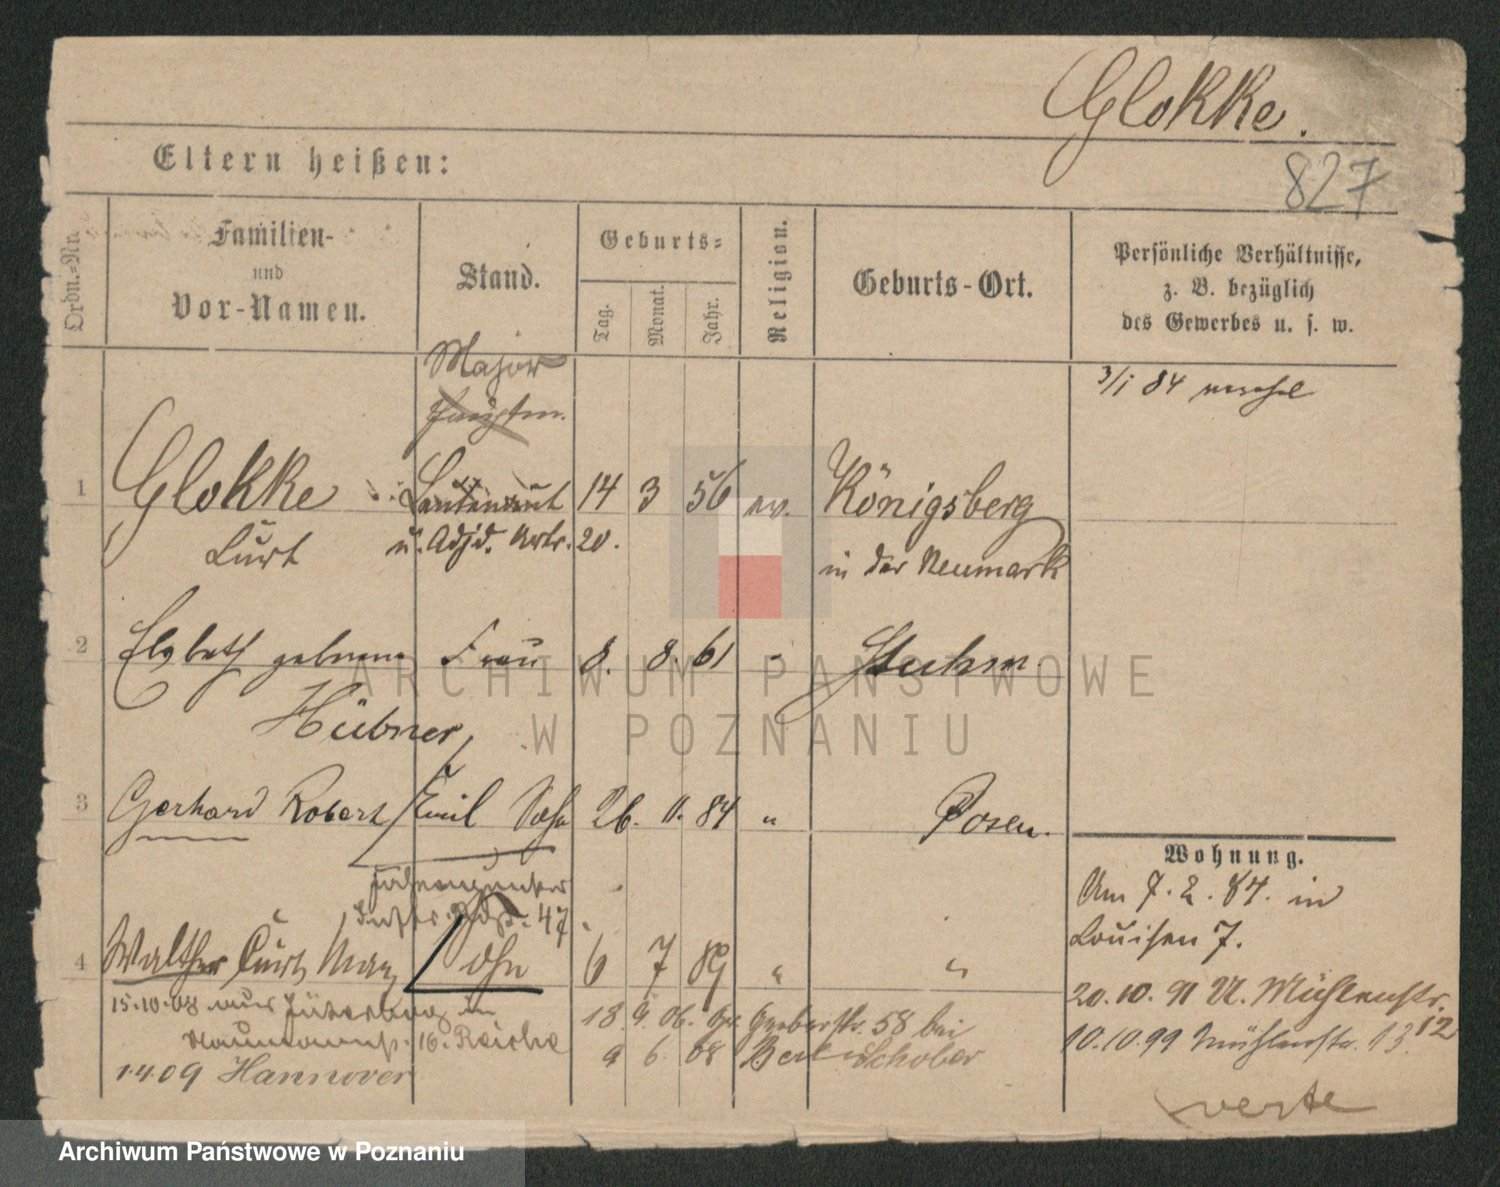 Glokke.
827
Eltern heißen:
Ordn.=Nr.
Familien-
und
Vor-Namen.
Stand.
Geburts=
Tag.
Monat.
Jahr.
Religion.
Geburts-Ort.
Persönliche Verhältnisse,
z. B. bezüglich
des Gewerbes u. s. w.
Major
3/1 84
1 Glokke Leutenant 14 3 56 ev. Königsberg
Curt u. Adjd. Artr. 20. in der Neumark
2 Elsbeth geborene Frau 8. 8. 61 " Stuhm
Hübner
3 Gerhard Robert Emil Sohn 26. 11. 84 " Posen.
Wohnung.
Am 7. 2. 84. in
Louisen 7.
47
4 Walther Curt Max Sohn 6 7 89 " "
20. 10. 91 U. Mühlenstr. 12
15.10.08 nach Jüterbog in
18. 9. 06. 58 bei
10.10.99 Mühlenstr. 13.
16. Reiche
9 6. 08 Berlin Schober
1.4.09 Hannover
verte
ARCHIWUM PAŃSTWOWE
W POZNANIU
Archiwum Państwowe w Poznaniu